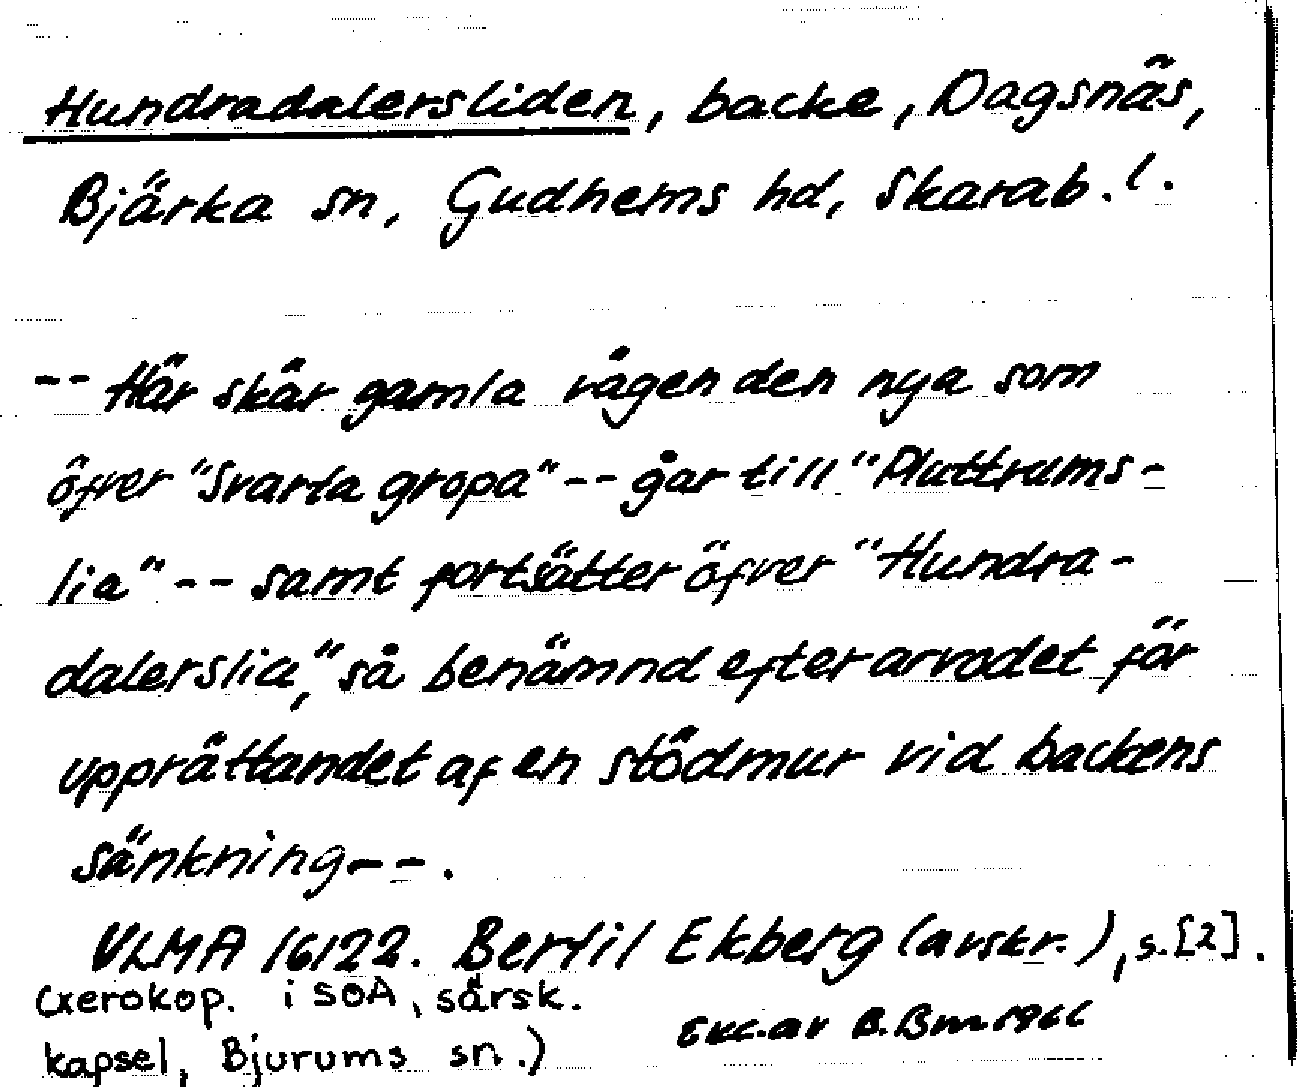 Hundradalersliden, backe, Dagsnäs,
Bjärka sn, Gudhems hd, Skarab. l.
-- Här skär gamla vägen den nya som
öfver "Svarta gropa" -- går till "Pluttrums-
lia" -- samt fortsätter öfver "Hundra-
dalerslia", så benämnd efter arvodet för
upprättandet af en stödmur vid backens
sänkning -- .
VLMA 16122. Bertil Ekberg (avskr.), s. [2].
(xerokop. i SOA, särsk.
kapsel, Bjurums sn.)
Exc. av B. Bm 1966